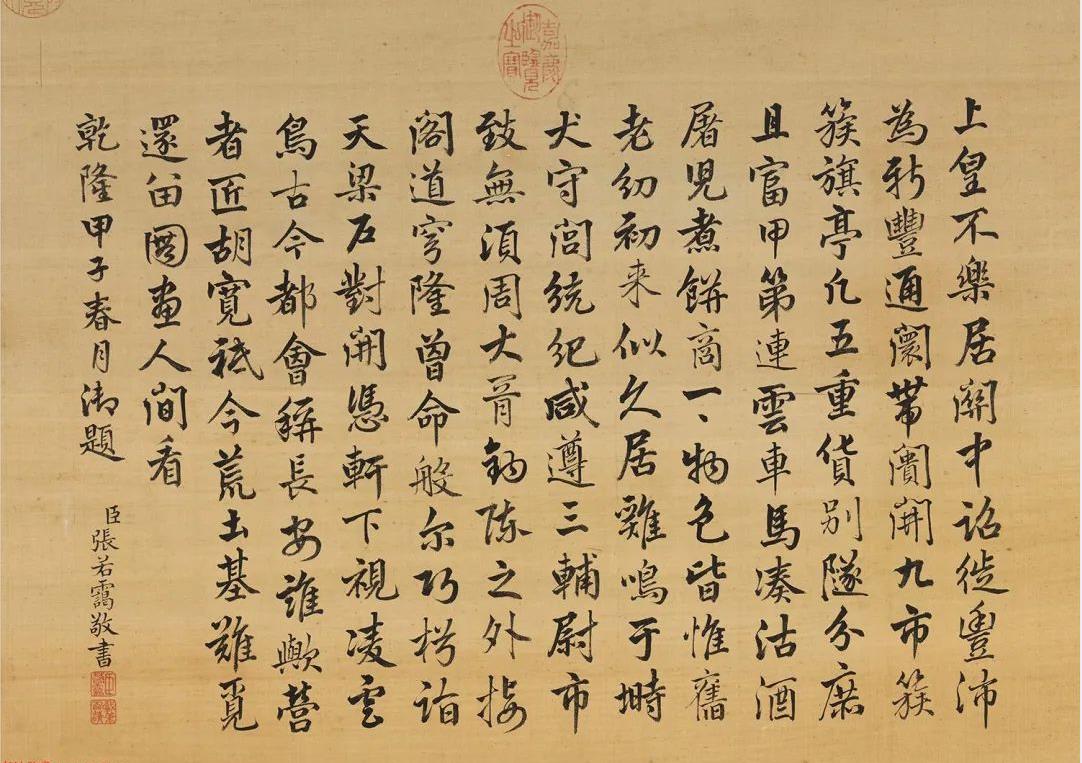 嘉慶御覽之寶
上皇不樂居關中詔徙豐沛
為新豐通闤帶闠開九市簇
簇旗亭凡五重貨別隧分廛
且富甲第連雲車馬湊沽酒
屠兒煮餅商一〻物色皆惟舊
老幼初来似久居雞鳴于塒
犬守閭統紀咸遵三輔尉市
致無須周大胥鉤陳之外接
閣道穹隆曾命般尔巧枍詣
天梁石對開憑軒下視凌雲
鳥古今都會稱長安誰歟營
者匠胡寬祗今荒土基難覓
還留圖畫人間看
乾隆甲子春月御題
臣張若靄敬書